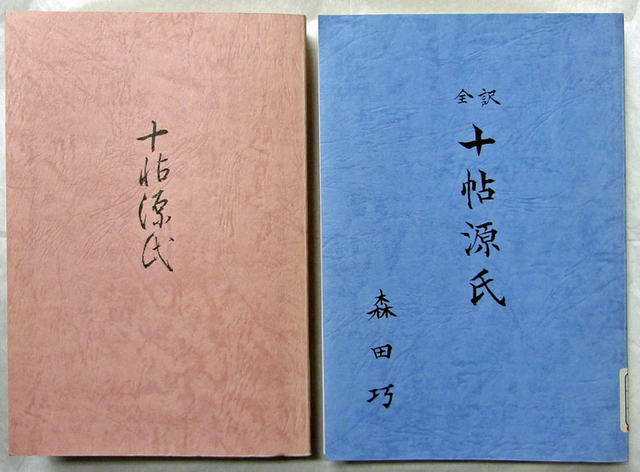 十帖源氏
全訳
十帖源氏
森田巧